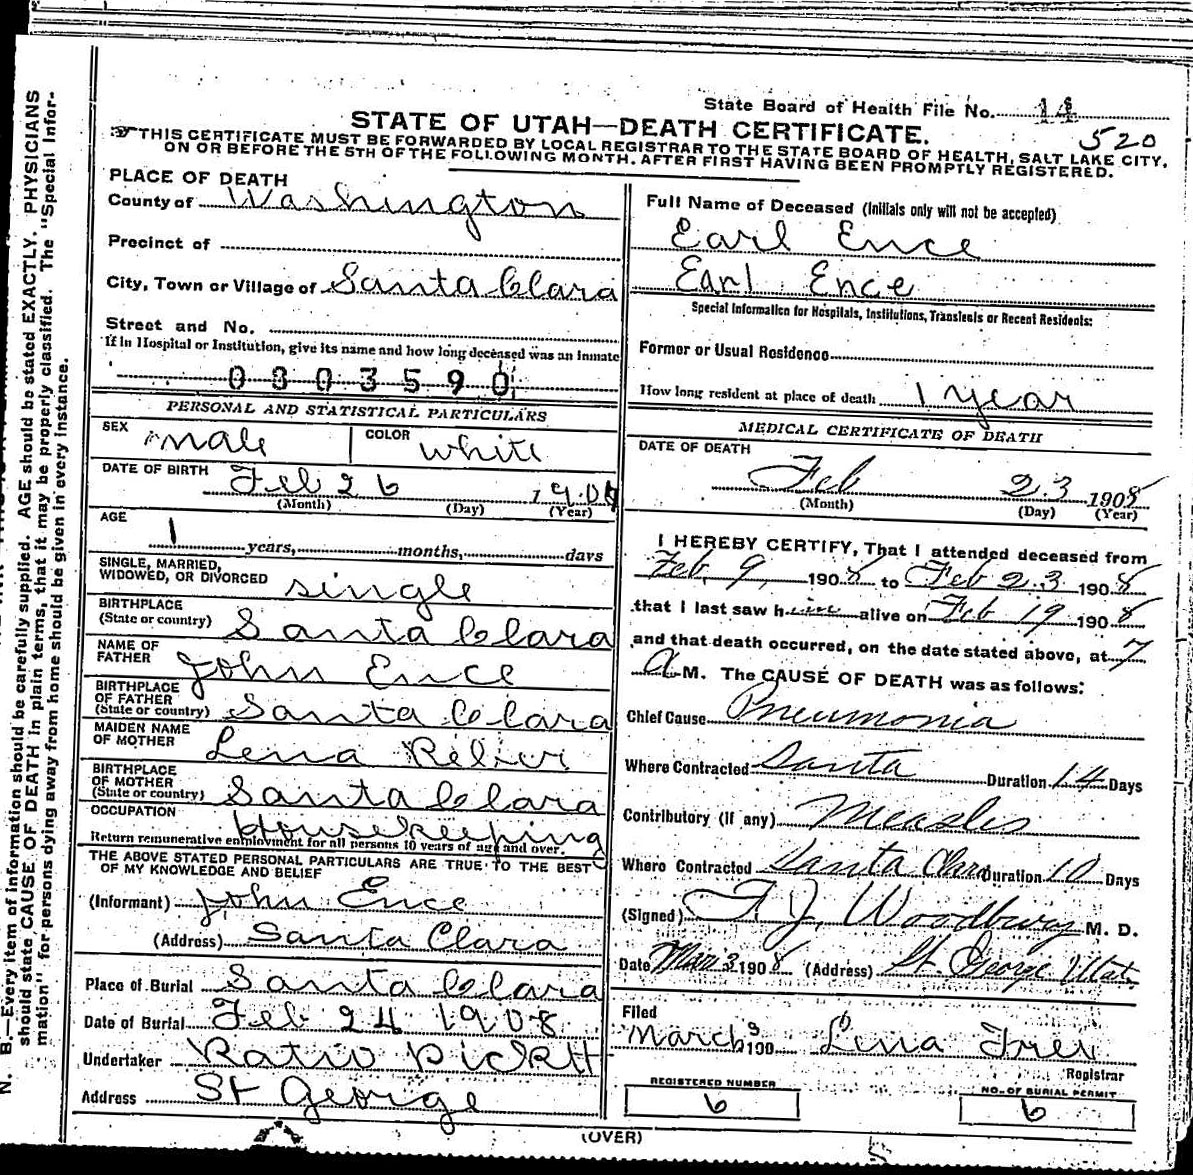 State Board of Health File No. 14
520
STATE OF UTAH—DEATH CERTIFICATE.
THIS CERTIFICATE MUST BE FORWARDED BY LOCAL REGISTRAR TO THE STATE BOARD OF HEALTH, SALT LAKE CITY,
ON OR BEFORE THE 5TH OF THE FOLLOWING MONTH. AFTER FIRST HAVING BEEN PROMPTLY REGISTERED.
PLACE OF DEATH
County of Washington
Precinct of
City, Town or Village of Santa Clara
Street and No.
If in Hospital or Institution, give its name and how long deceased was an inmate
0303590
PERSONAL AND STATISTICAL PARTICULARS
SEX male COLOR white
DATE OF BIRTH Feb 26 190
(Month) (Day) (Year)
AGE
1 years, months, days
SINGLE, MARRIED,
WIDOWED, OR DIVORCED single
BIRTHPLACE
(State or country) Santa Clara
NAME OF
FATHER John Ence
BIRTHPLACE
OF FATHER
(State or country) Santa Clara
MAIDEN NAME
OF MOTHER Lena
BIRTHPLACE
OF MOTHER
(State or country) Santa Clara
OCCUPATION
Housekeeping
Return remunerative employment for all persons 10 years of age and over.
THE ABOVE STATED PERSONAL PARTICULARS ARE TRUE TO THE BEST
OF MY KNOWLEDGE AND BELIEF
(Informant) John Ence
(Address) Santa Clara
Place of Burial Santa Clara
Date of Burial Feb 24 1908
Undertaker Pickett
Address St George
Full Name of Deceased (Initials only will not be accepted)
Earl Ence
Earl Ence
Special Information for Hospitals, Institutions, Transients or Recent Residents:
Former or Usual Residence
How long resident at place of death 1 year
MEDICAL CERTIFICATE OF DEATH
DATE OF DEATH
Feb 23 1908
(Month) (Day) (Year)
I HEREBY CERTIFY, That I attended deceased from
Feb, 9, 1908 to Feb 23 1908
that I last saw him alive on Feb 19 1908
and that death occurred, on the date stated above, at 7
a M. The CAUSE OF DEATH was as follows:
Chief Cause Pneumonia
Where Contracted Santa Duration 14 Days
Contributory (if any) Measles
Where Contracted Santa Clara Duration 10 Days
(Signed) F. J. Woodbury M. D.
Date Mar 3 1908 (Address) St George Utah
Filed
March 3 190 Lena Frei
Registrar
REGISTERED NUMBER
6
NO. OF BURIAL PERMIT
6
(OVER)
5
N. B.—Every item of information should be carefully supplied. AGE should be stated EXACTLY. PHYSICIANS
should state CAUSE OF DEATH in plain terms, that it may be properly classified. The "Special Infor-
mation" for persons dying away from home should be given in every instance.